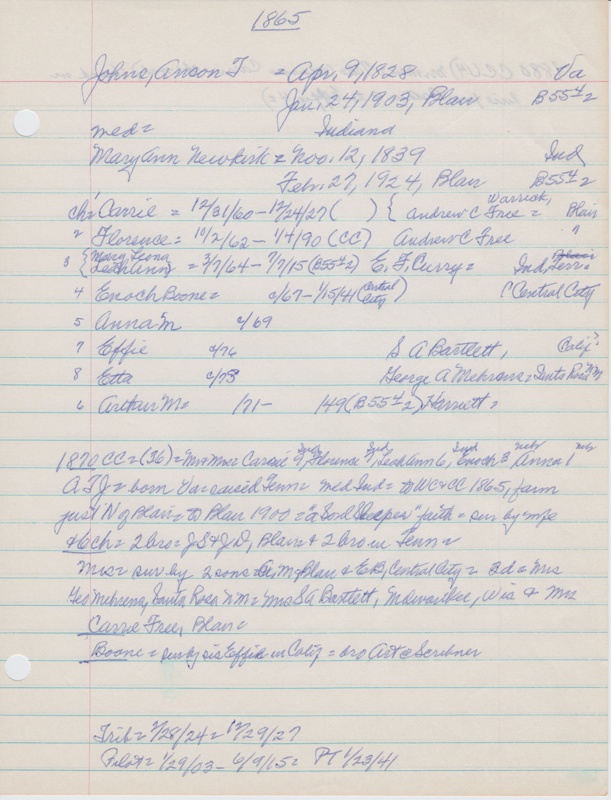 1865
Johns, Anson T = Apr. 9, 1828 Va
Jan. 24, 1903, Blair B55-4-2
med = Indiana
Mary Ann Newkirk = Nov. 12, 1839 Ind
Feb. 27, 1924, Blair B55-4-2
ch = ' Carrie = 12/31/60 - 12/24/27 ( ) { Andrew C Free = Warrick, Blair
2 Florence = 10/2/62 - 1/4/90 (CC) Andrew C Free "
3 { Mary Leona Leah Ann } = 3/7/64 - 7/7/15 (B55-4-2) E. F. Curry = Ind, Terr.
4 Enoch Boone = c/67 - 1/15/41 (Central City) (Central City
5 Anna M c/69
7 Effie c/76 S A Bartlett, Calif ?
8 Etta c/78 George A Mehrens = Santa Rosa NM
6 Arthur M = /71 - /49 (B55-4-2) Harriett =
1870 CC = (36) = Mr & Mrs = Carrie 9 Ind, Florence 7 Ind, Leah Ann 6, Ind Enoch 3 Neb Anna 1 Neb
ATJ = born Va = raised Tenn = med Ind = to WC & CC 1865, farm
just N of Blair = to Blair 1900 = "a Soul Sleeper" faith = sur by wife
& 6 ch = 2 bro = JS & JD, Blair & 2 bro in Tenn =
Mrs = sur by 2 sons = A, M, Blair & EB, Central City = 3d = Mrs
Geo Mehrens, Santa Rosa NM = Mrs SA Bartlett, Milwaukee, Wis & Mrs
Carrie Free, Blair =
Boone = sur by sis Effie in Calif = bro Art @ Scribner
Trib = 2/28/24 = 12/29/27
Pilot = 1/29/03 - 6/9/15 = PT 1/23/41